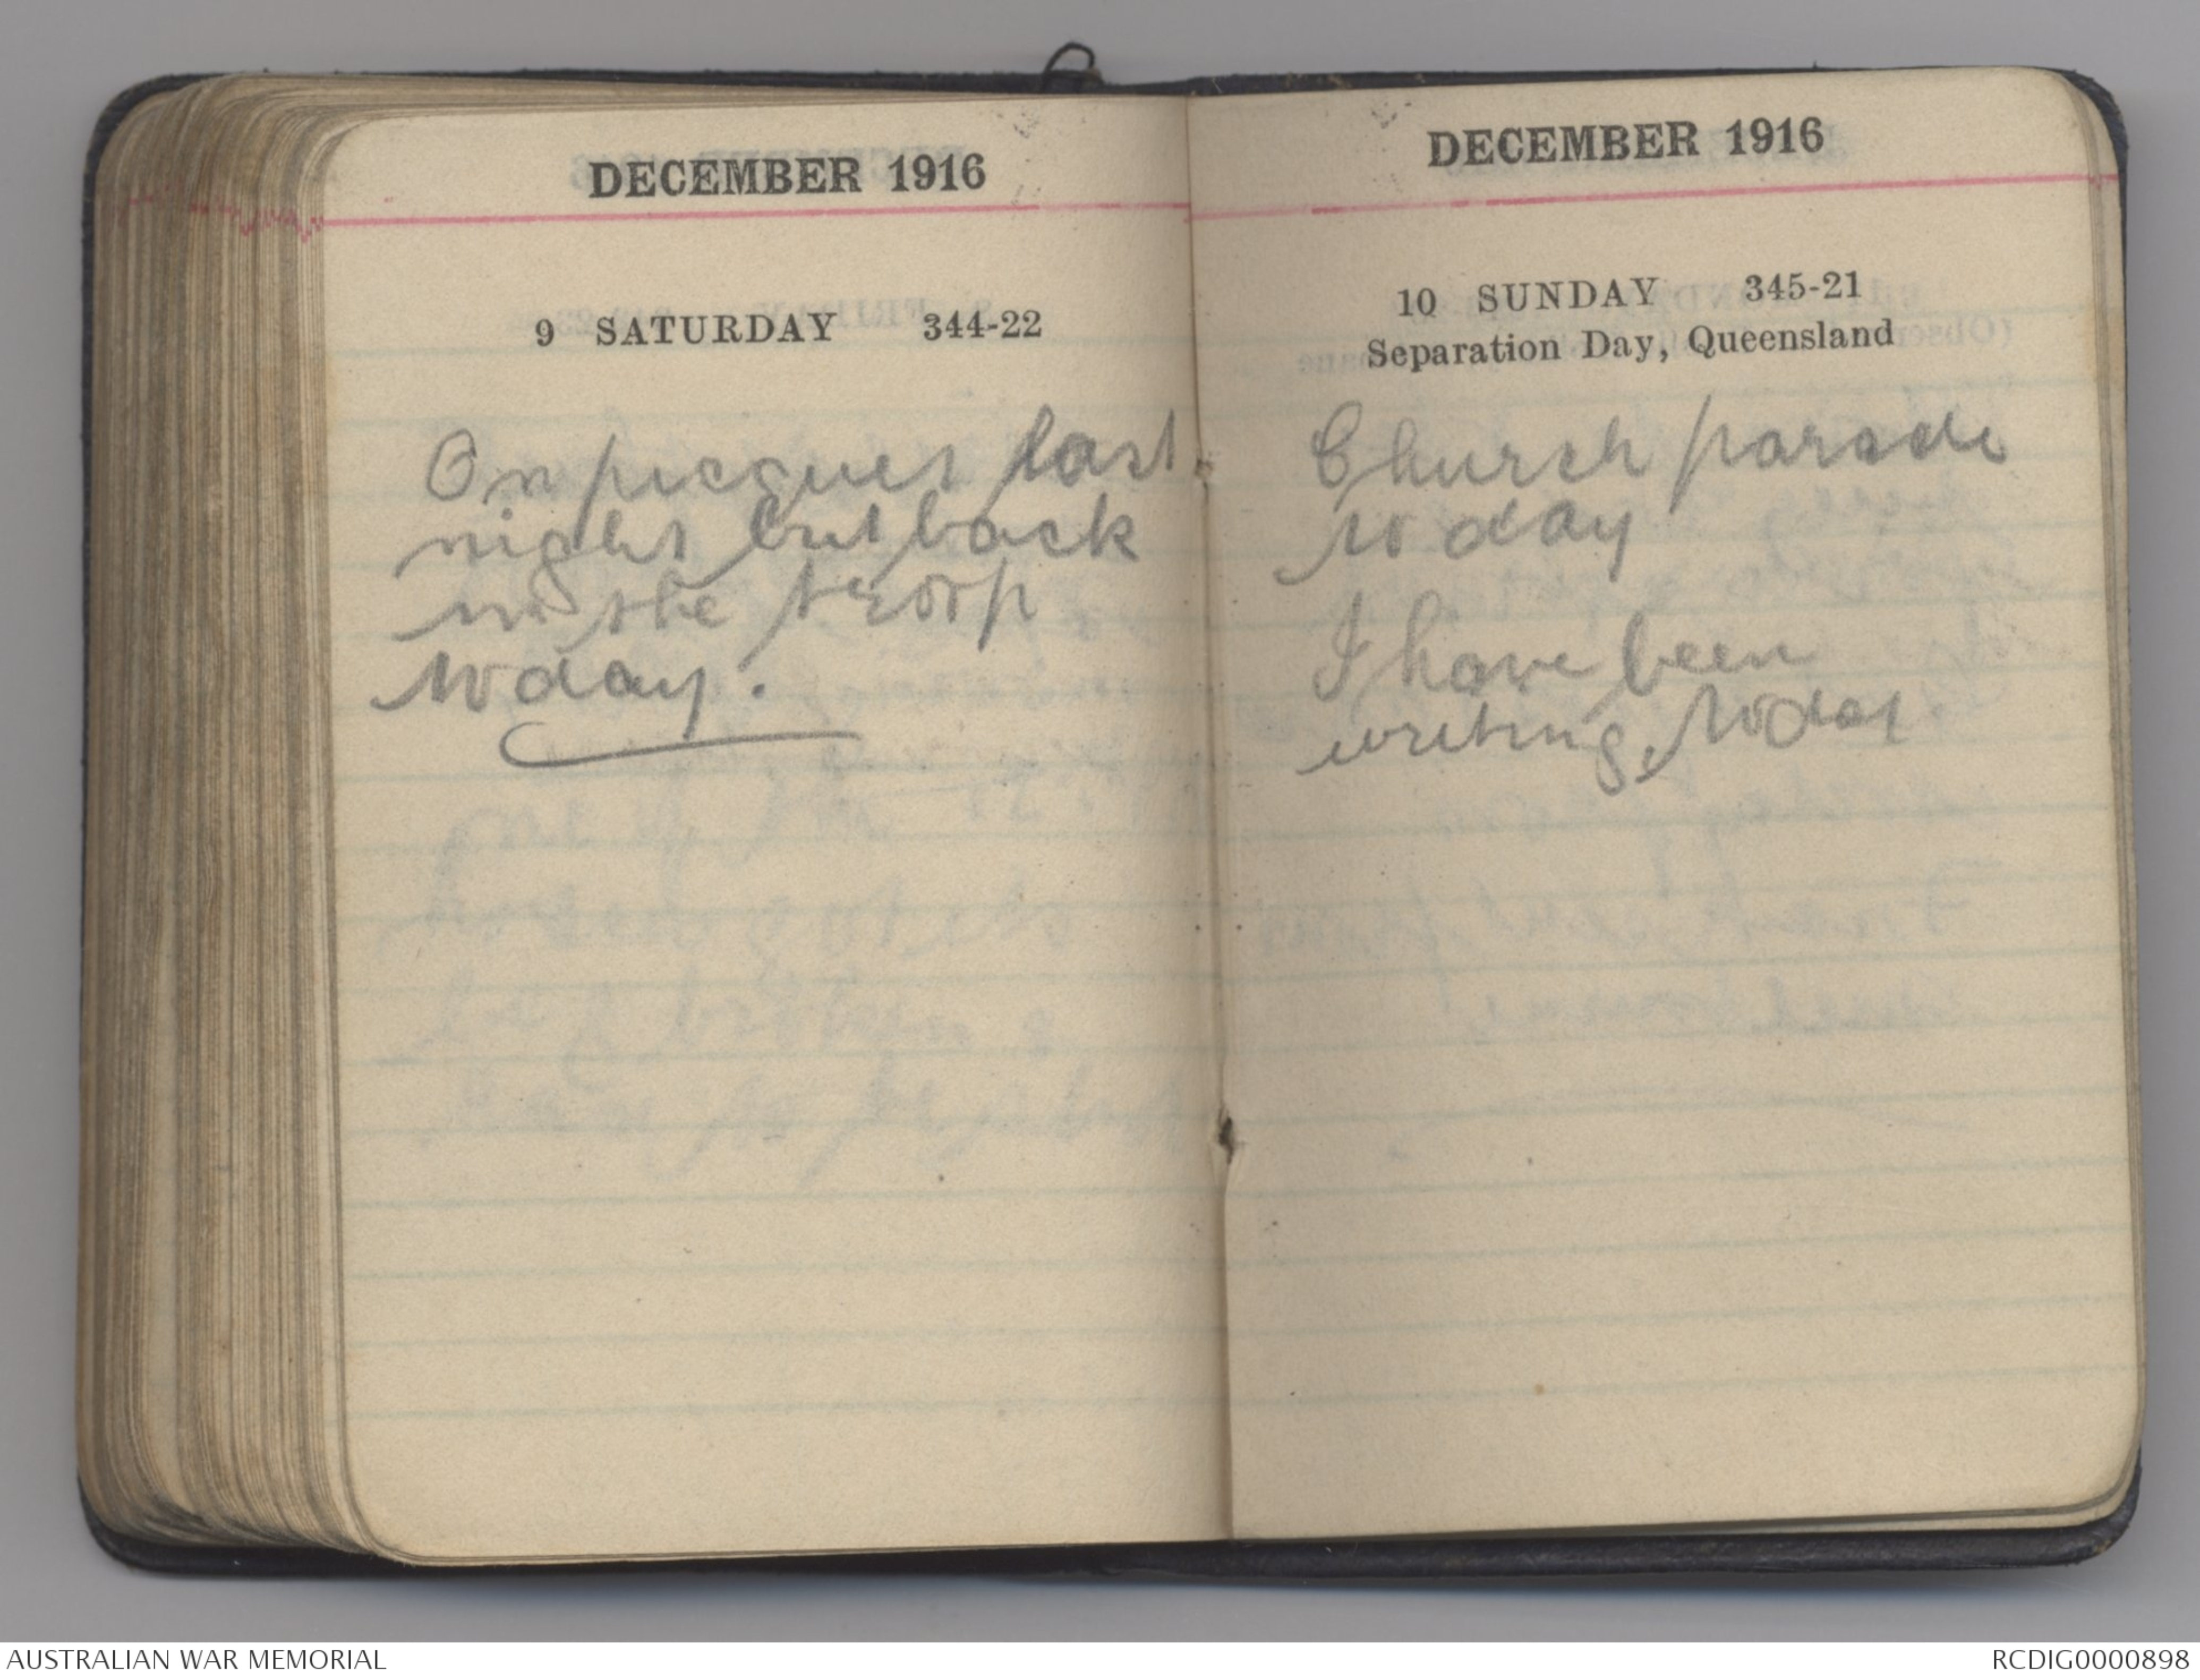 DECEMBER 1916
9 SATURDAY 344-22
On picquet last
night but back
in the troop
today.
DECEMBER 1916
10 SUNDAY 345-21
Separation Day, Queensland
Church parade
to day
I have been
writing today
AUSTRALIAN WAR MEMORIAL
RCDIG0000898